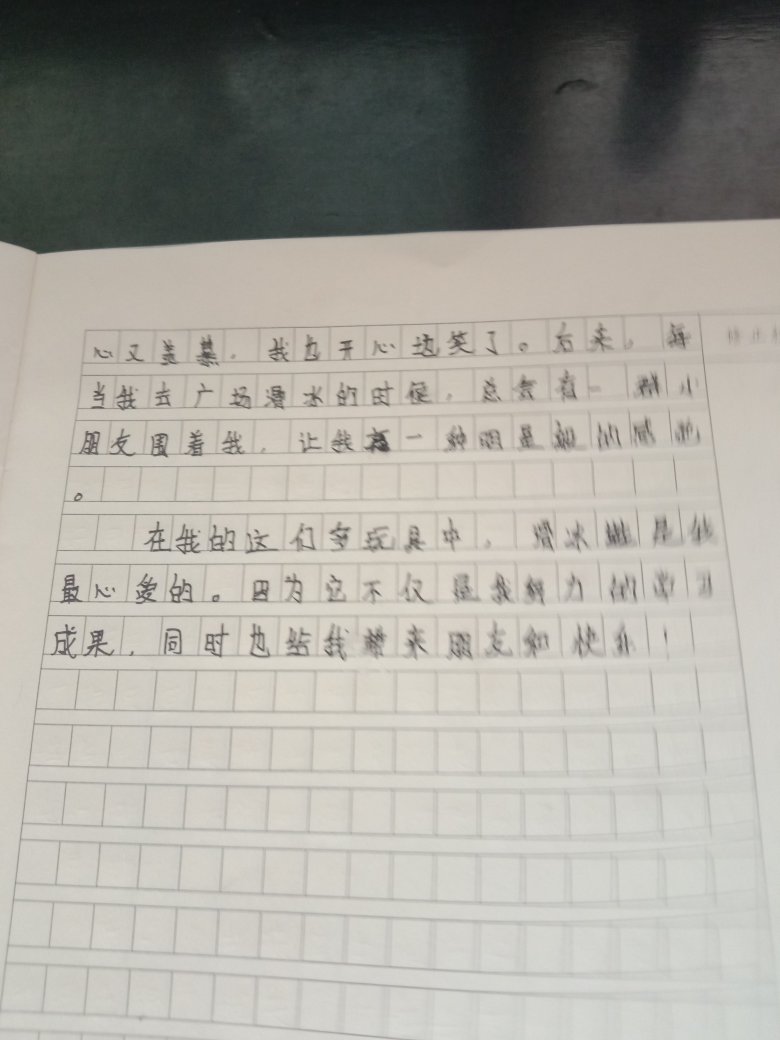 心又羡慕，我也开心边笑了。后来，每
当我去广场滑水的时候，总会有一群小
朋友围着我，让我有一种明星般的感觉
。
在我的这们多玩具中，滑冰鞋是我
最心爱的。因为它不仅是我努力的学习
成果，同时也给我带来朋友和快乐！